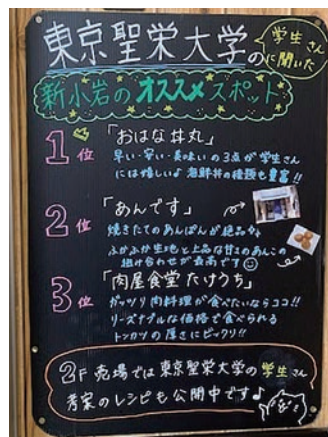 東京聖栄大学の
学生さん
に聞いた
新小岩のオススメスポット
1位 「おはな丼丸」
早い・安い・美味いの3点が学生さん
には嬉しい♪ 海鮮丼の種類も豊富!!
2位 「あんです」
焼きたてのあんぱんが絶品☆
ふかふか生地と上品な甘さのあんこの
組け合わせが最高です
3位 「肉屋食堂 たけうち」
ガッツリ肉料理が食べたいならココ!!
リーズナブルな価格で食べられる
トンカツの厚さにビックリ!!
2F 売場では東京聖栄大学の学生さん
考案のレシピも公開中です♪